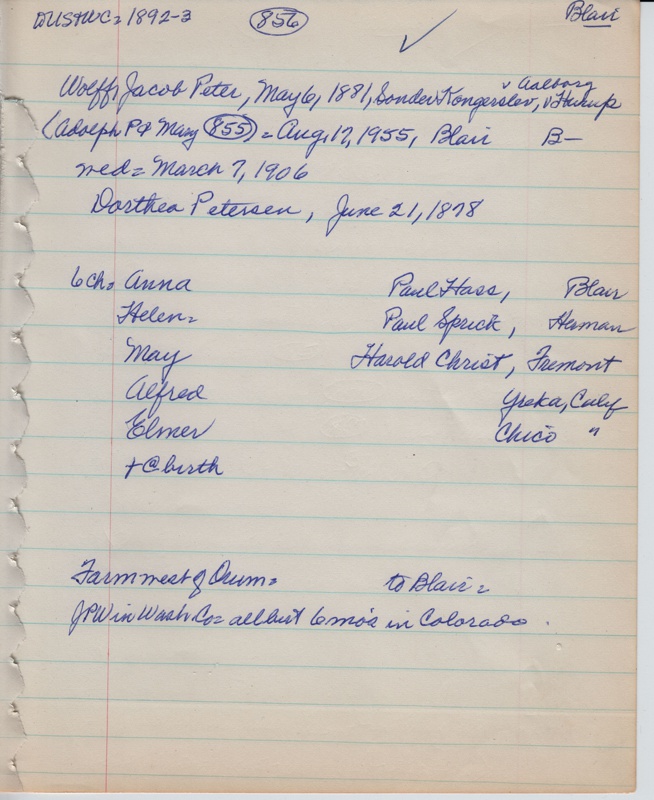 DUS+WC= 1892-3 856 Blair
v Aalborg
Wolff, Jacob Peter, May 6, 1881, Sonder Kongerslev, v Hurup
(Adolph P & Mary 855) = Aug. 17, 1955, Blair B-
wed= March 7, 1906
Dorthea Petersen, June 21, 1878
6 ch= Anna Paul Hass, Blair
Helen= Paul Sprick, Herman
May Harold Christ, Fremont
Alfred Yreka, Calif
Elmer Chico "
+@birth
Farm west of Orum= to Blair=
JPW in Wash Co= all but 6 mo's in Colorado.